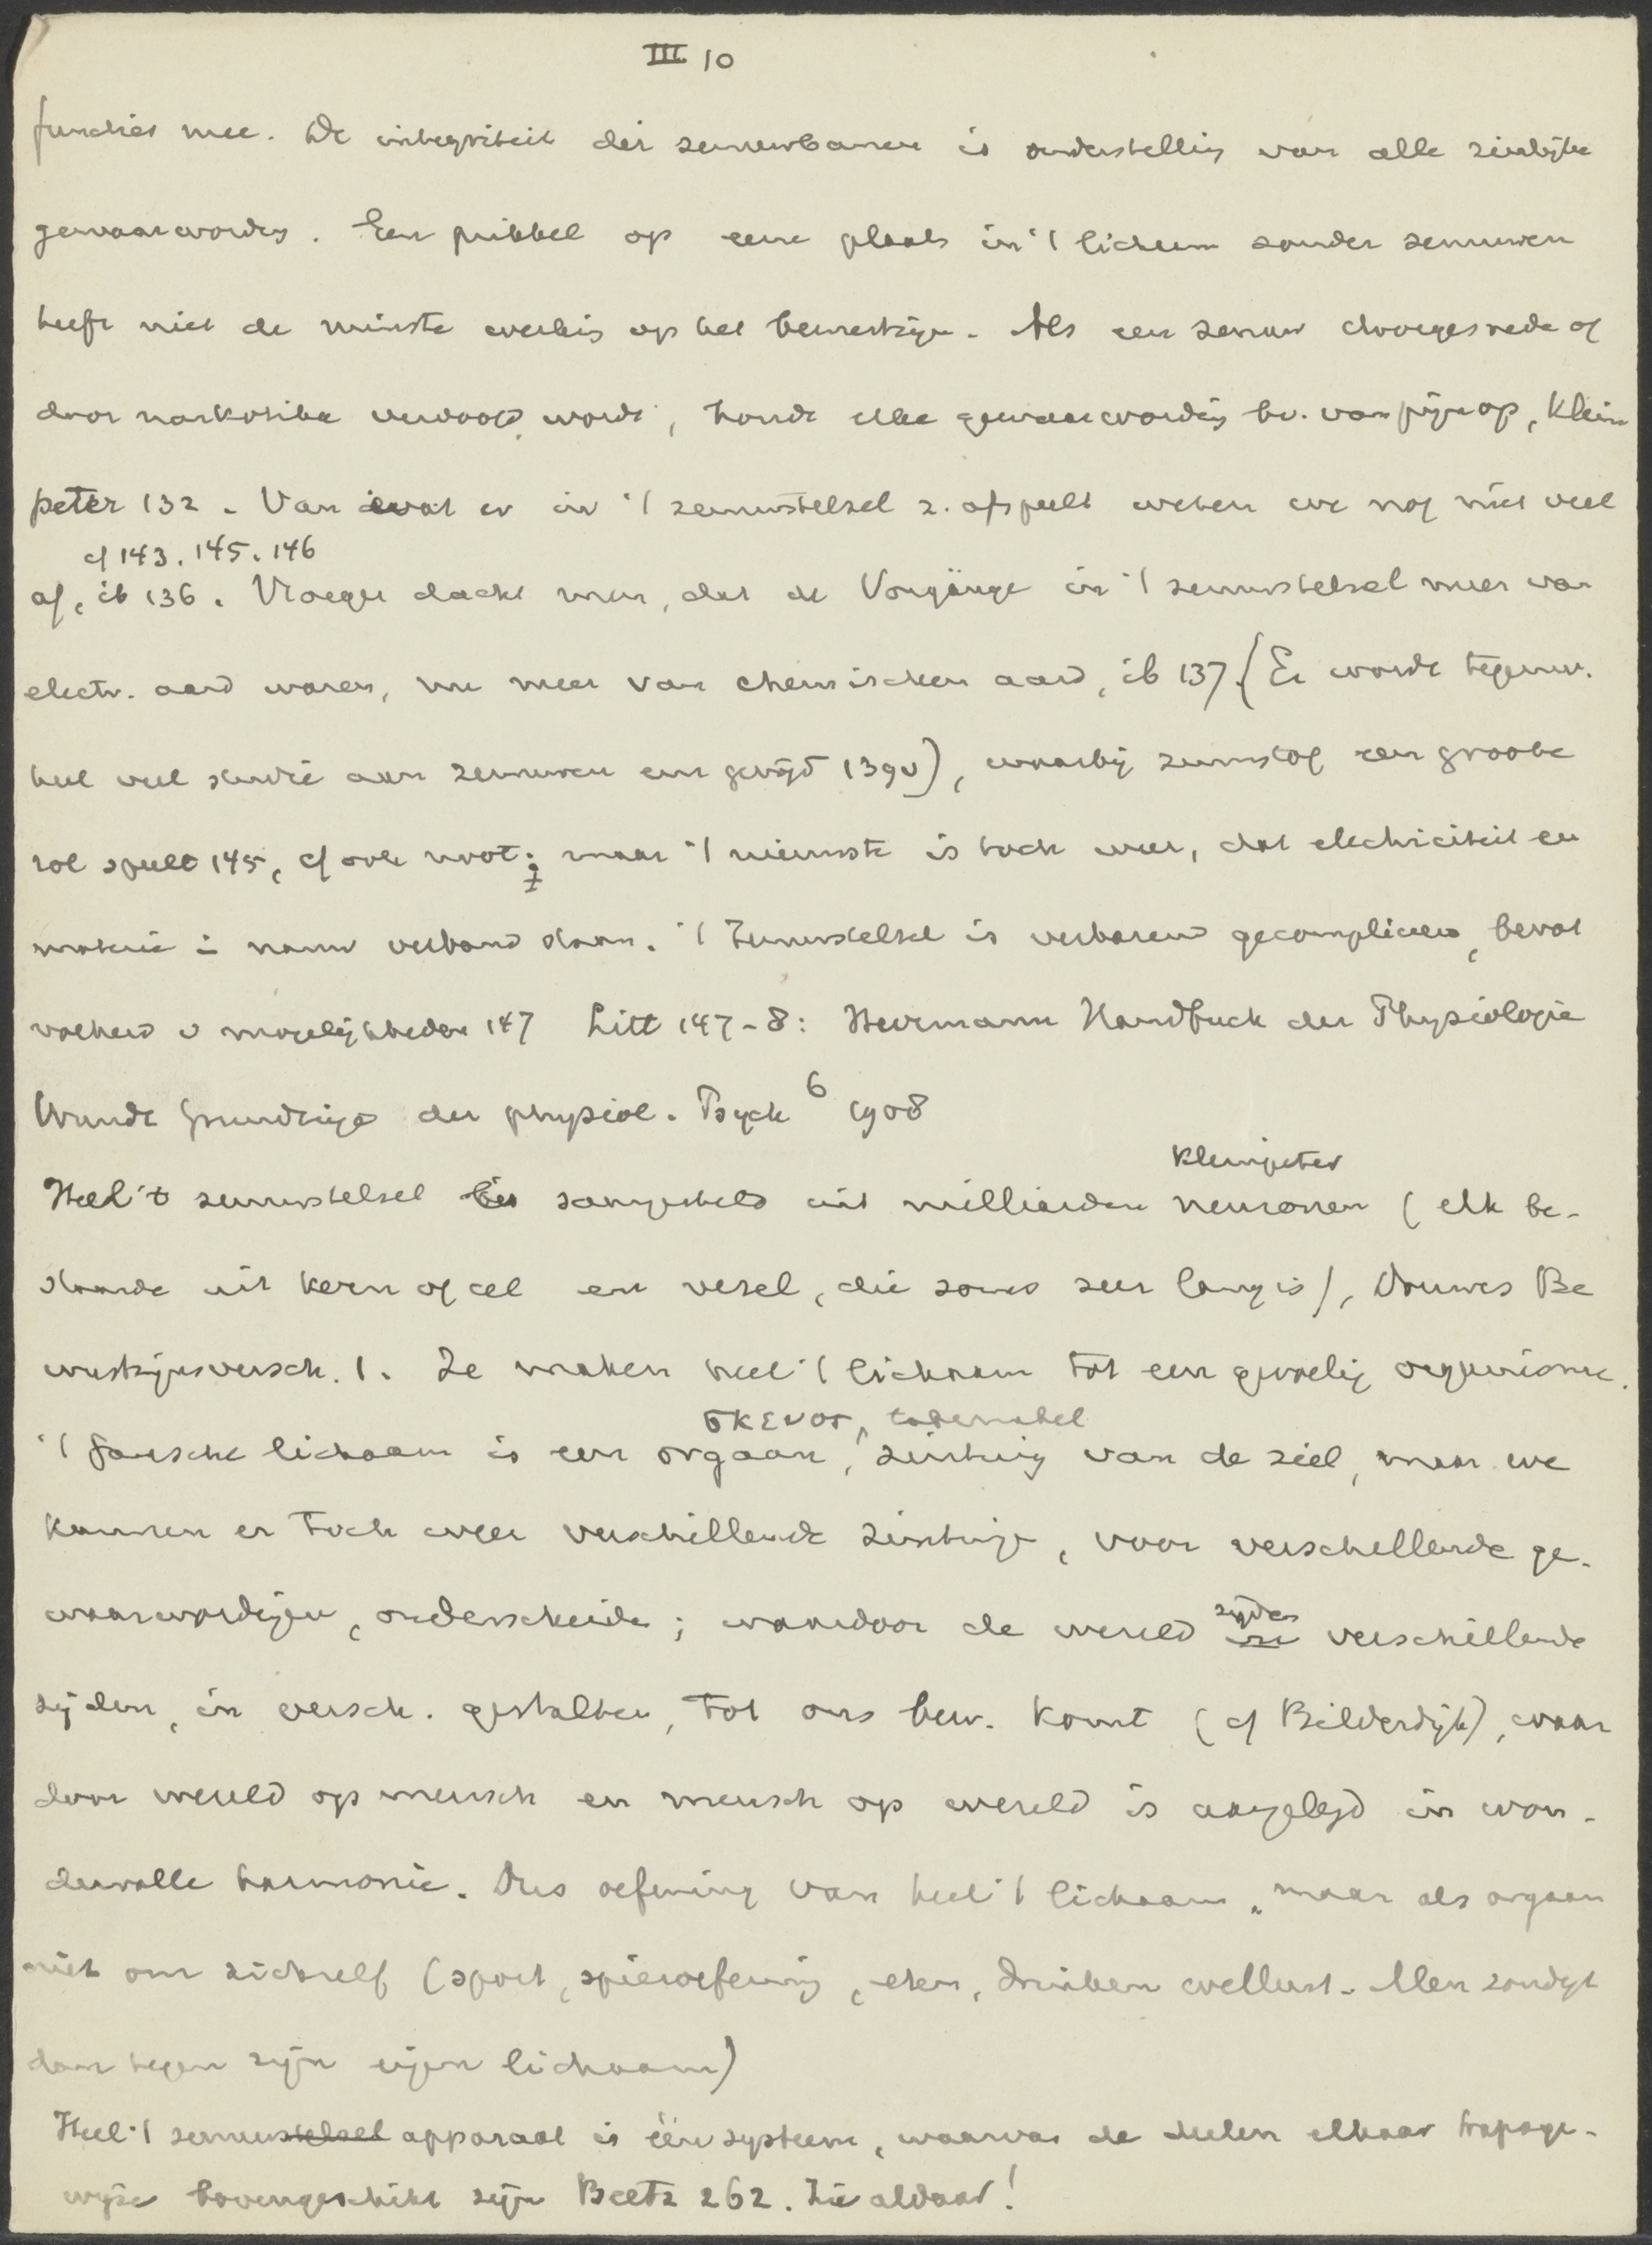 III 10
functies mee. De integriteit der zenuwbanen is onderstelling van alle zinlijke
gewaarwording. Een prikkel op eene plaats in 't lichaam zonder zenuwen
heeft niet de minste werking op het bewustzijn. Als een zenuw doorgesneden of
door narkotika verdoofd wordt, houdt elke gewaarwording bv. van pijn op, Klein
peter 132. Van wat er in 't zenuwstelsel z. afspeelt weten we nog niet veel
cf 143. 145. 146
af, ib 136. Vroeger dacht men, dat de Vorgänge in 't zenuwstelsel meer van
electr. aard waren, nu meer van chemischen aard, ib 137. (Er wordt tegenw.
heel veel studie aan zenuwen gewijd 139v), waarbij zenuwstof een groote
rol speelt 145, cf ook noot; maar 't nieuwste is toch weer, dat electriciteit en
materie i nauw verband staan. 't Zenuwstelsel is verbazend gecompliceerd, bevat
v mogelijkheden 147 Litt 147-8: Hermann Handbuch der Physiologie
Wundt Grundzüge der physiol. Psych 6 1908
Kleinpeter
Heel 't zenuwstelsel is samengesteld uit milliarden neuronen (elk be-
staande uit kern of cel en vezel, die soms zeer lang is), Douwes Be
wustzijnsversch. 1. Ze maken heel 't lichaam tot een gevoelig organisme.
σκευος, tabernakel
't gansche lichaam is een orgaan, zintuig van de ziel, maar we
kunnen er toch weer verschillende zintuigen, voor verschillende ge-
waarwordingen, onderscheiden; waardoor de wereld verschillende
zijden, in versch. gestalten, tot ons bew. komt (cf Bilderdijk), waar
door wereld op mensch en mensch op wereld is aangelegd in won-
dervolle harmonie. Dus oefening van heel 't lichaam, maar als orgaan
niet om zichzelf (sport, spieroefening, eten, drinken wellust. Men zondigt
dan tegen zijn eigen lichaam)
Heel 't zenuwstelsel apparaat is één systeem, waarvan de deelen elkaar trapsge-
wijze bovengeschikt zijn Beetz 262. Zie aldaar!